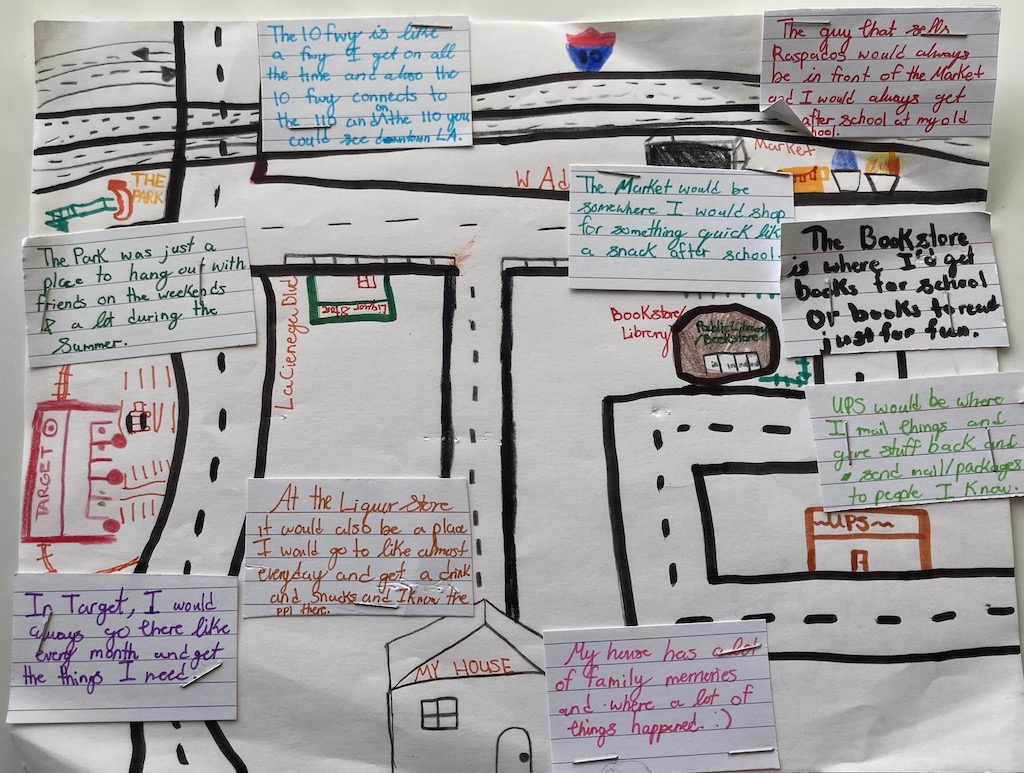 The 10 fwy is like
a fwy I get on all
the time and also the
10 fwy connects to
the 110 and on the 110 you
could see downtown L.A.
The guy that sells
Raspados would always
be in front of the Market
and I would always get
after school at my old
school.
Market
THE
PARK
W Ad
The Market would be
somewhere I would shop
for something quick like
a snack after school.
The Park was just a
place to hang out with
friends on the weekends
& a lot during the
Summer.
The Bookstore
is where I'd get
books for school
or books to read
just for fun.
La Cienega Blvd
Liquor Store
Bookstore
Library
Public Library
/Bookstore
UPS would be where
I mail things and
give stuff back and
send mail/packages
to people I know.
TARGET
At the Liquor Store
it would also be a place
I would go to like almost
everyday and get a drink
and snacks and I know the
ppl there.
~UPS~
In Target, I would
always go there like
every month and get
the things I need.
MY HOUSE
My house has a lot
of family memories
and where a lot of
things happened. :)